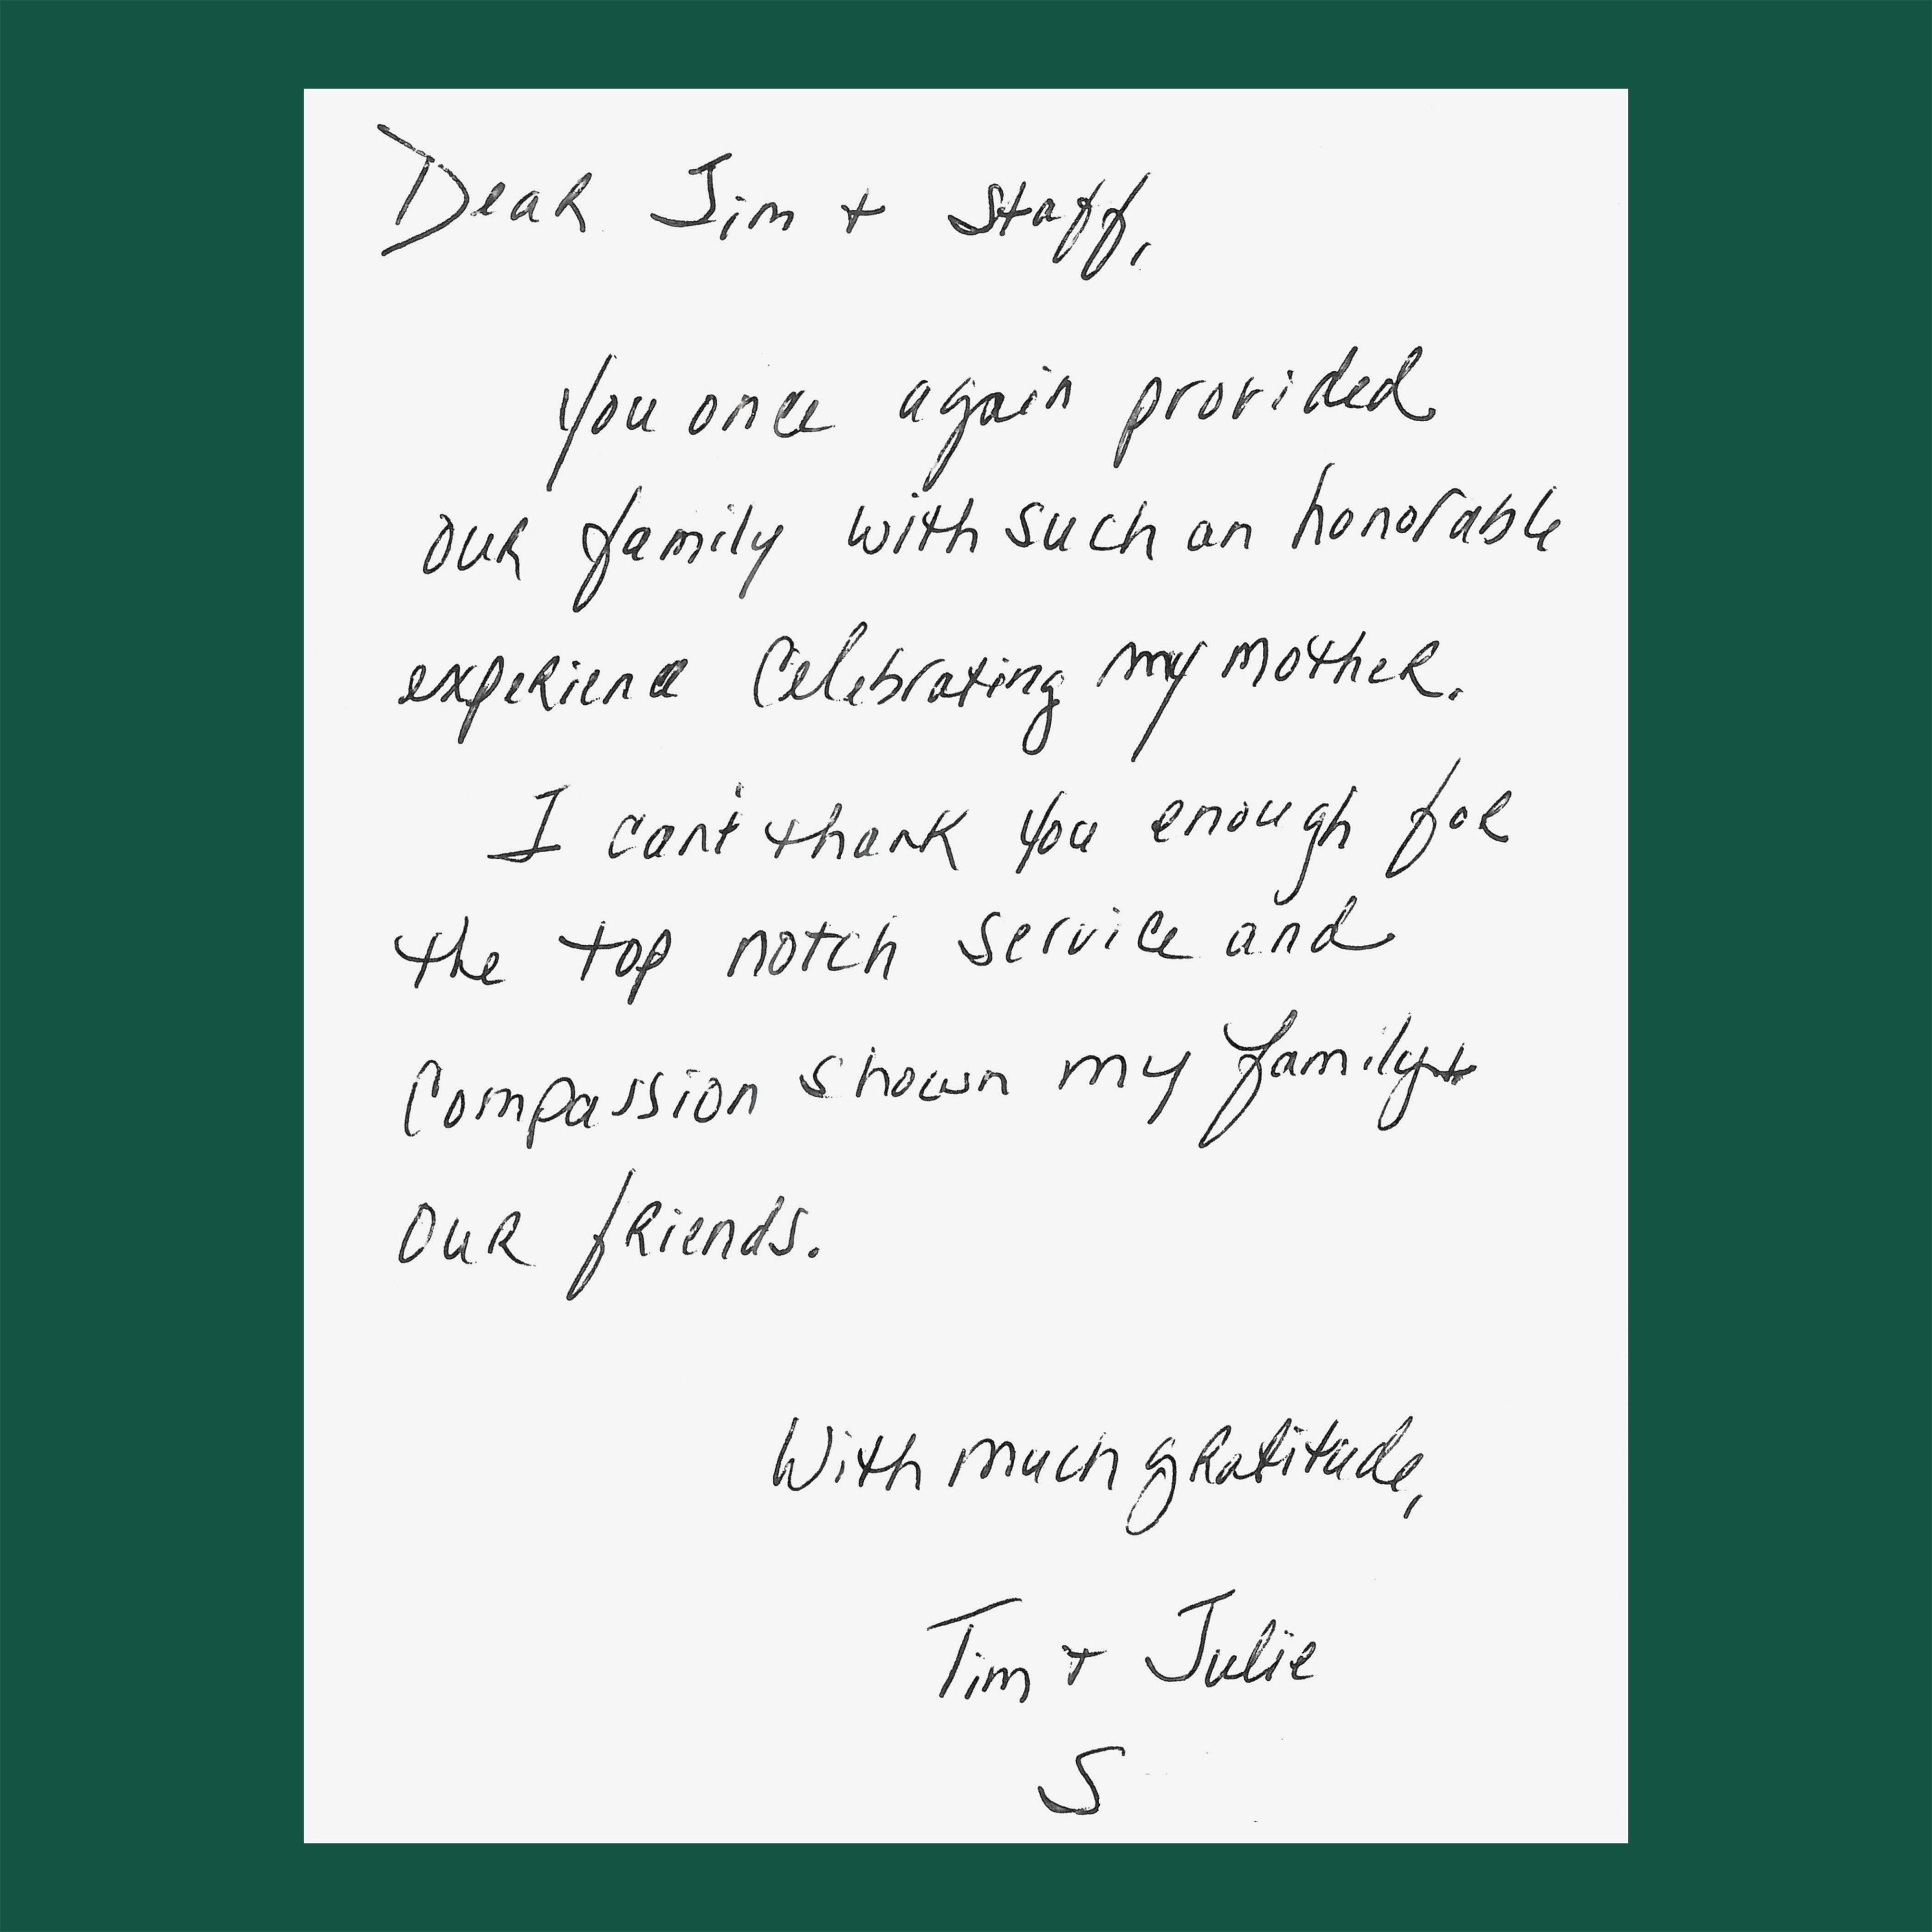 Dear Jim + Staff,
You once again provided
our family with such an honorable
experience Celebrating my mother.
I can't thank you enough for
the top notch service and
Compassion shown my family +
our friends.
With much gratitude,
Tim + Julie
S